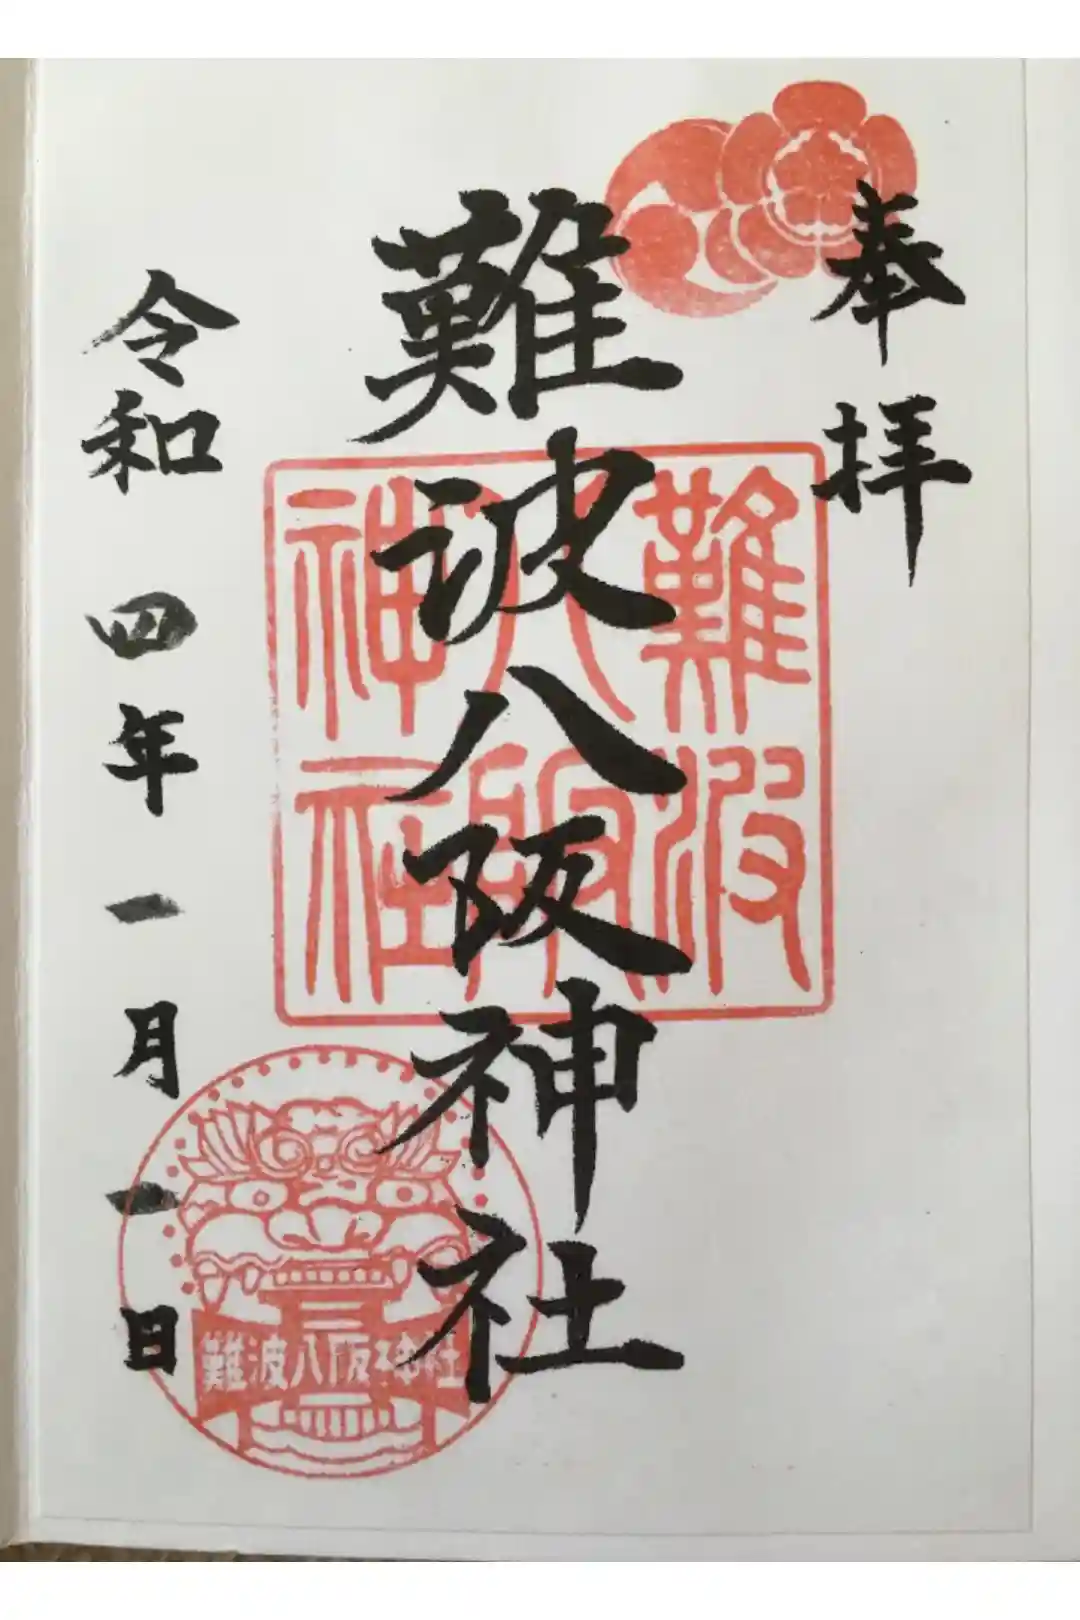 奉拝
難波八阪神社
難波
八阪
神社
令和四年一月一日
難波八阪神社